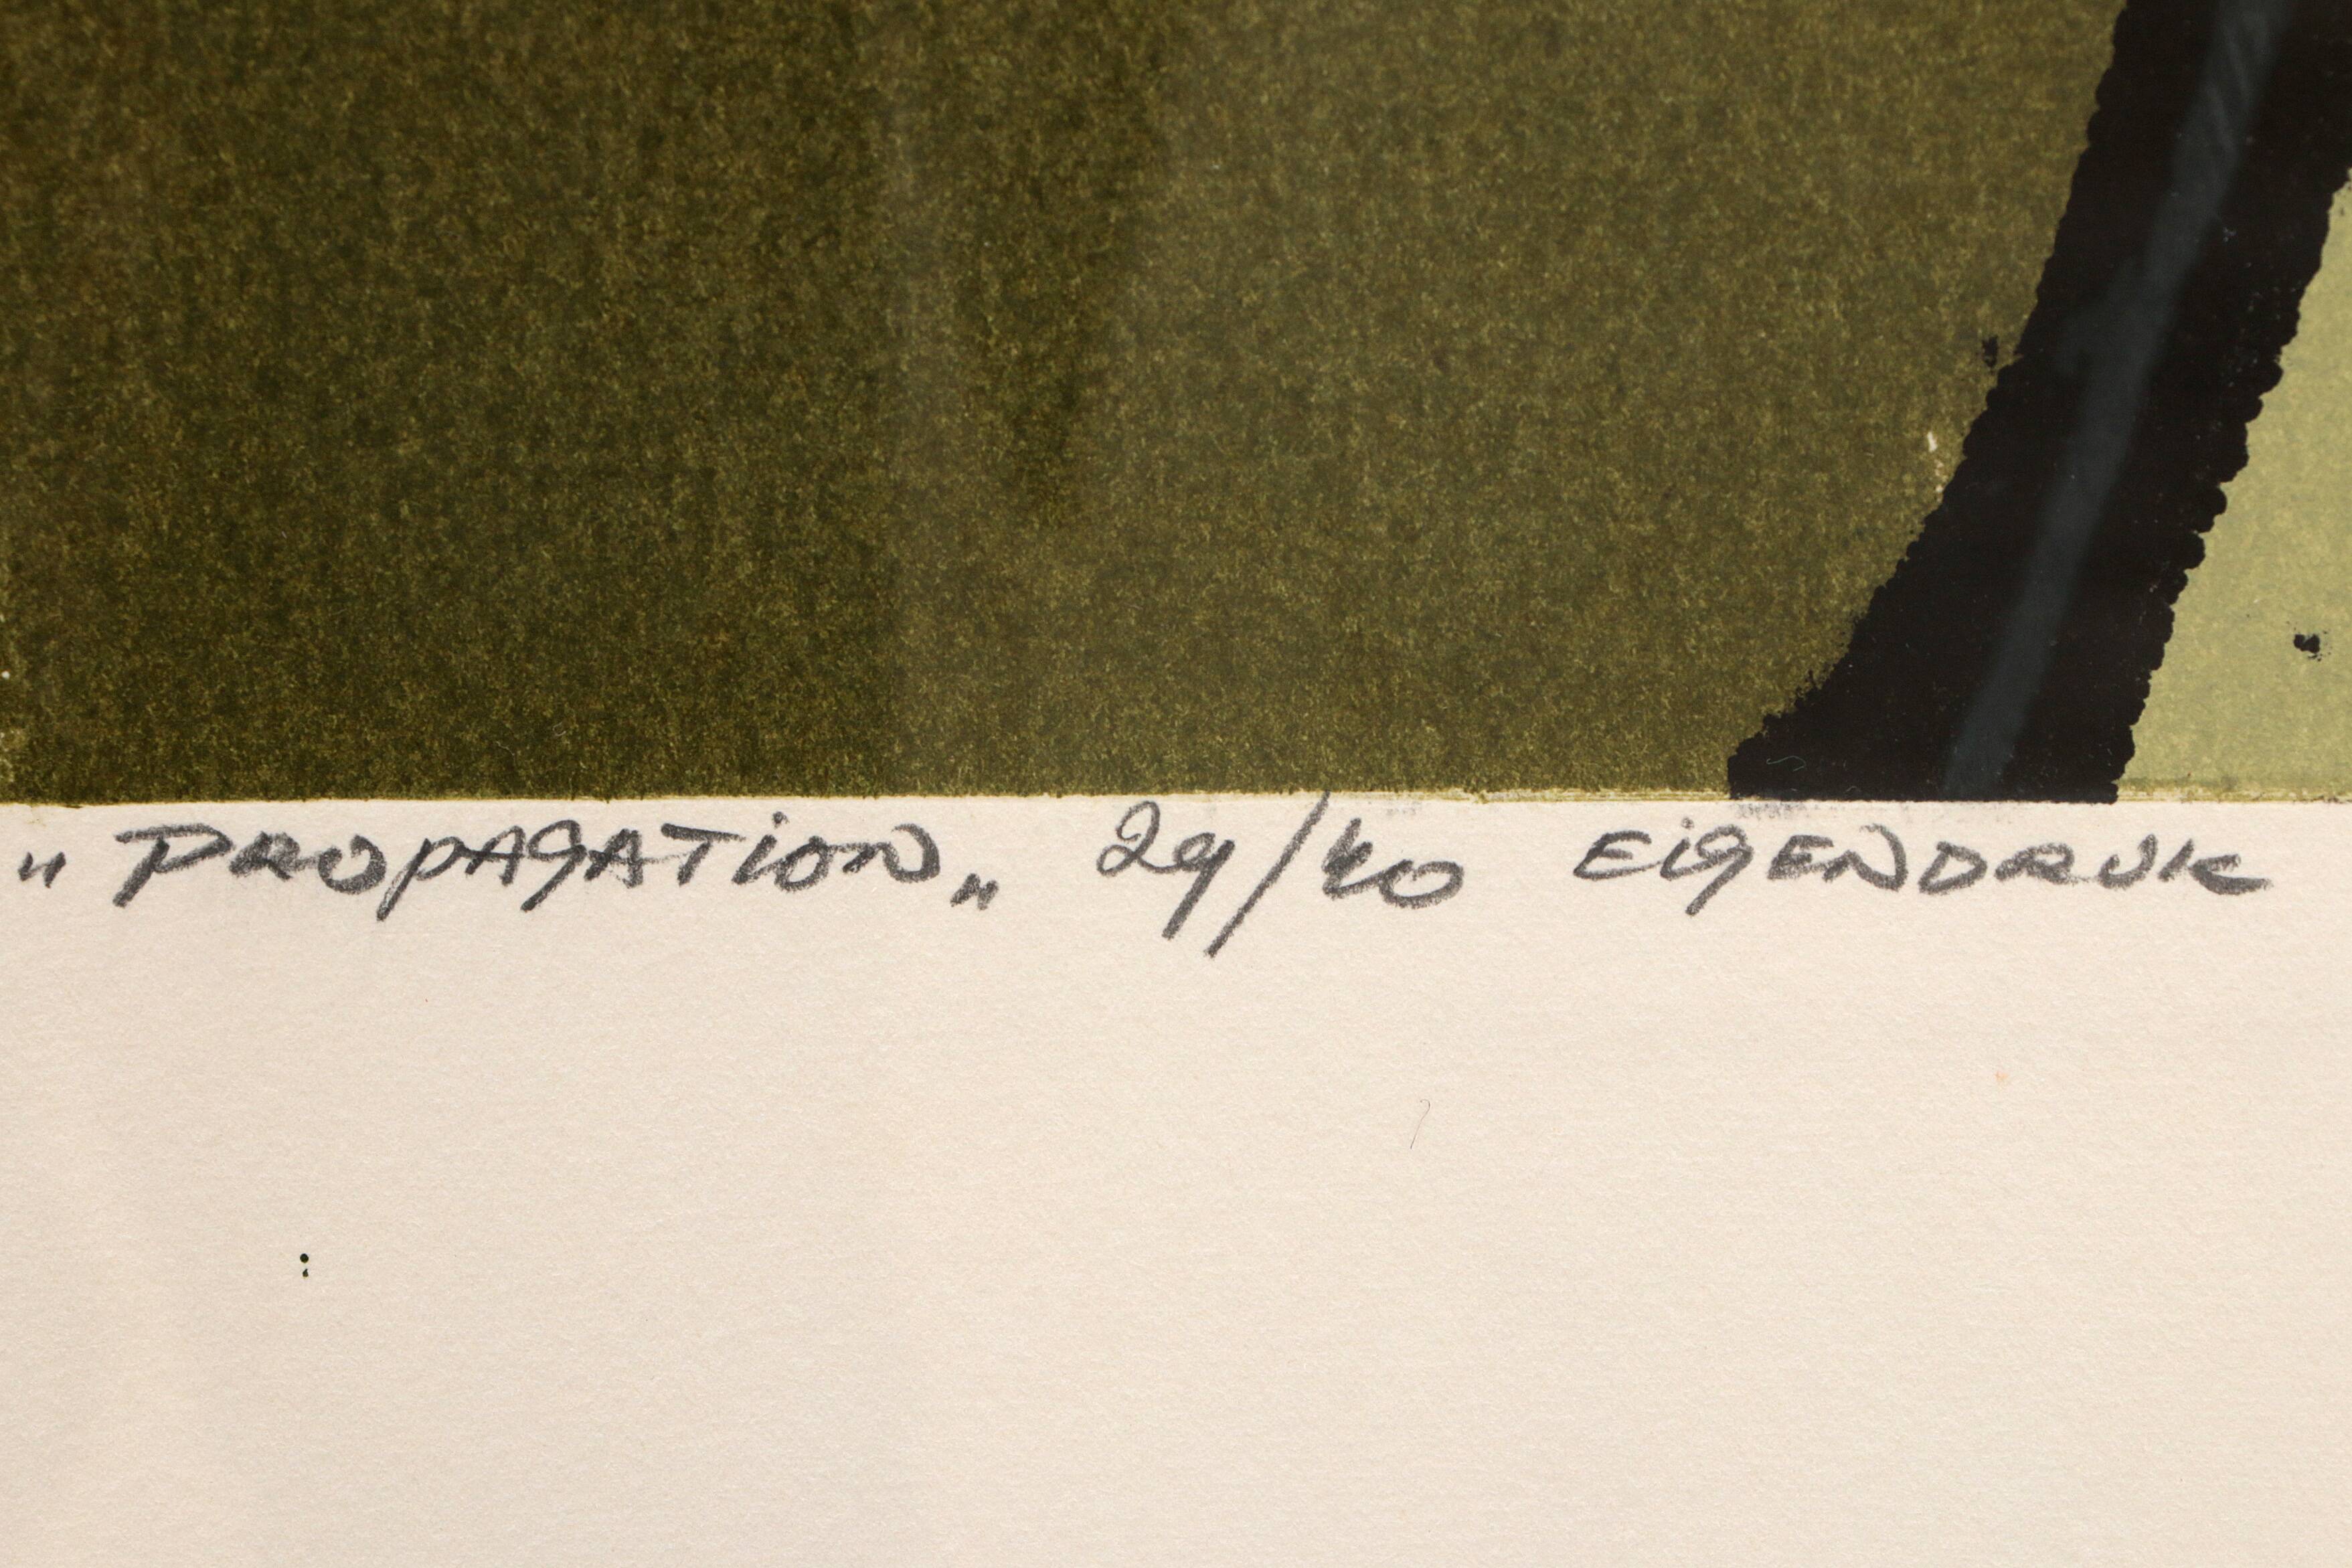 „ PROPAGATION „ 29/40 EiGENDRUK